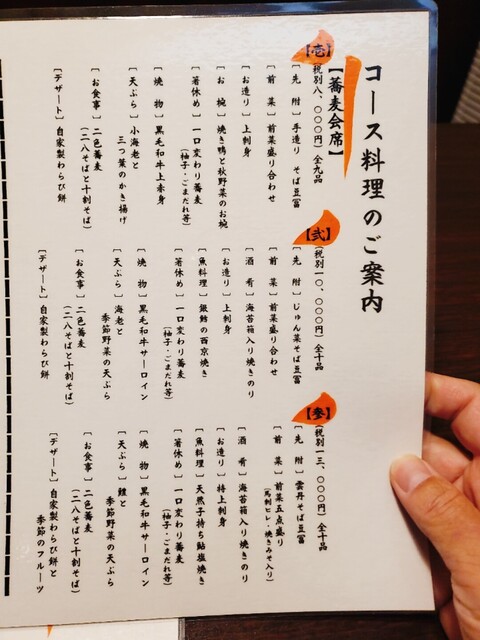 コース料理のご案内
【蕎麦会席】
【壱】
(税別八、〇〇〇円) 全九品
[先 附] 手造り そば豆冨
[前 菜] 前菜盛り合わせ
[お造り] 上刺身
[お 椀] 焼き鴨と秋野菜のお椀
[箸休め] 一口変わり蕎麦
(柚子・ごまだれ等)
[焼 物] 黒毛和牛上赤身
[天ぷら] 小海老と
三つ葉のかき揚げ
[お食事] 二色蕎麦
(二八そばと十割そば)
[デザート] 自家製わらび餅
【弐】
(税別一〇、〇〇〇円) 全十品
[先 附] じゅん菜そば豆冨
[前 菜] 前菜盛り合わせ
[酒 肴] 海苔箱入り焼きのり
[お造り] 上刺身
[魚料理] 銀鱈の西京焼き
[箸休め] 一口変わり蕎麦
(柚子・ごまだれ等)
[焼 物] 黒毛和牛サーロイン
[天ぷら] 海老と
季節野菜の天ぷら
[お食事] 二色蕎麦
(二八そばと十割そば)
[デザート] 自家製わらび餅
【参】
(税別一三、〇〇〇円) 全十品
[先 附] 雲丹そば豆冨
[前 菜] 前菜五点盛り
(馬刺ヒレ・焼きみそ入り)
[酒 肴] 海苔箱入り焼きのり
[お造り] 特上刺身
[魚料理] 天然子持ち鮎塩焼き
[箸休め] 一口変わり蕎麦
(柚子・ごまだれ等)
[焼 物] 黒毛和牛サーロイン
[天ぷら] 鱧と
季節野菜の天ぷら
[お食事] 二色蕎麦
(二八そばと十割そば)
[デザート] 自家製わらび餅と
季節のフルーツ